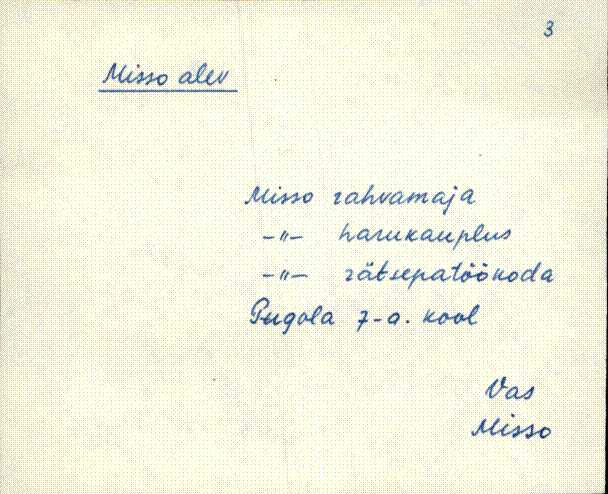 3
Misso alev
Misso rahvamaja
-"- harukauplus
-"- rätsepatöökoda
Pugola 7-a. kool
Vas
Misso